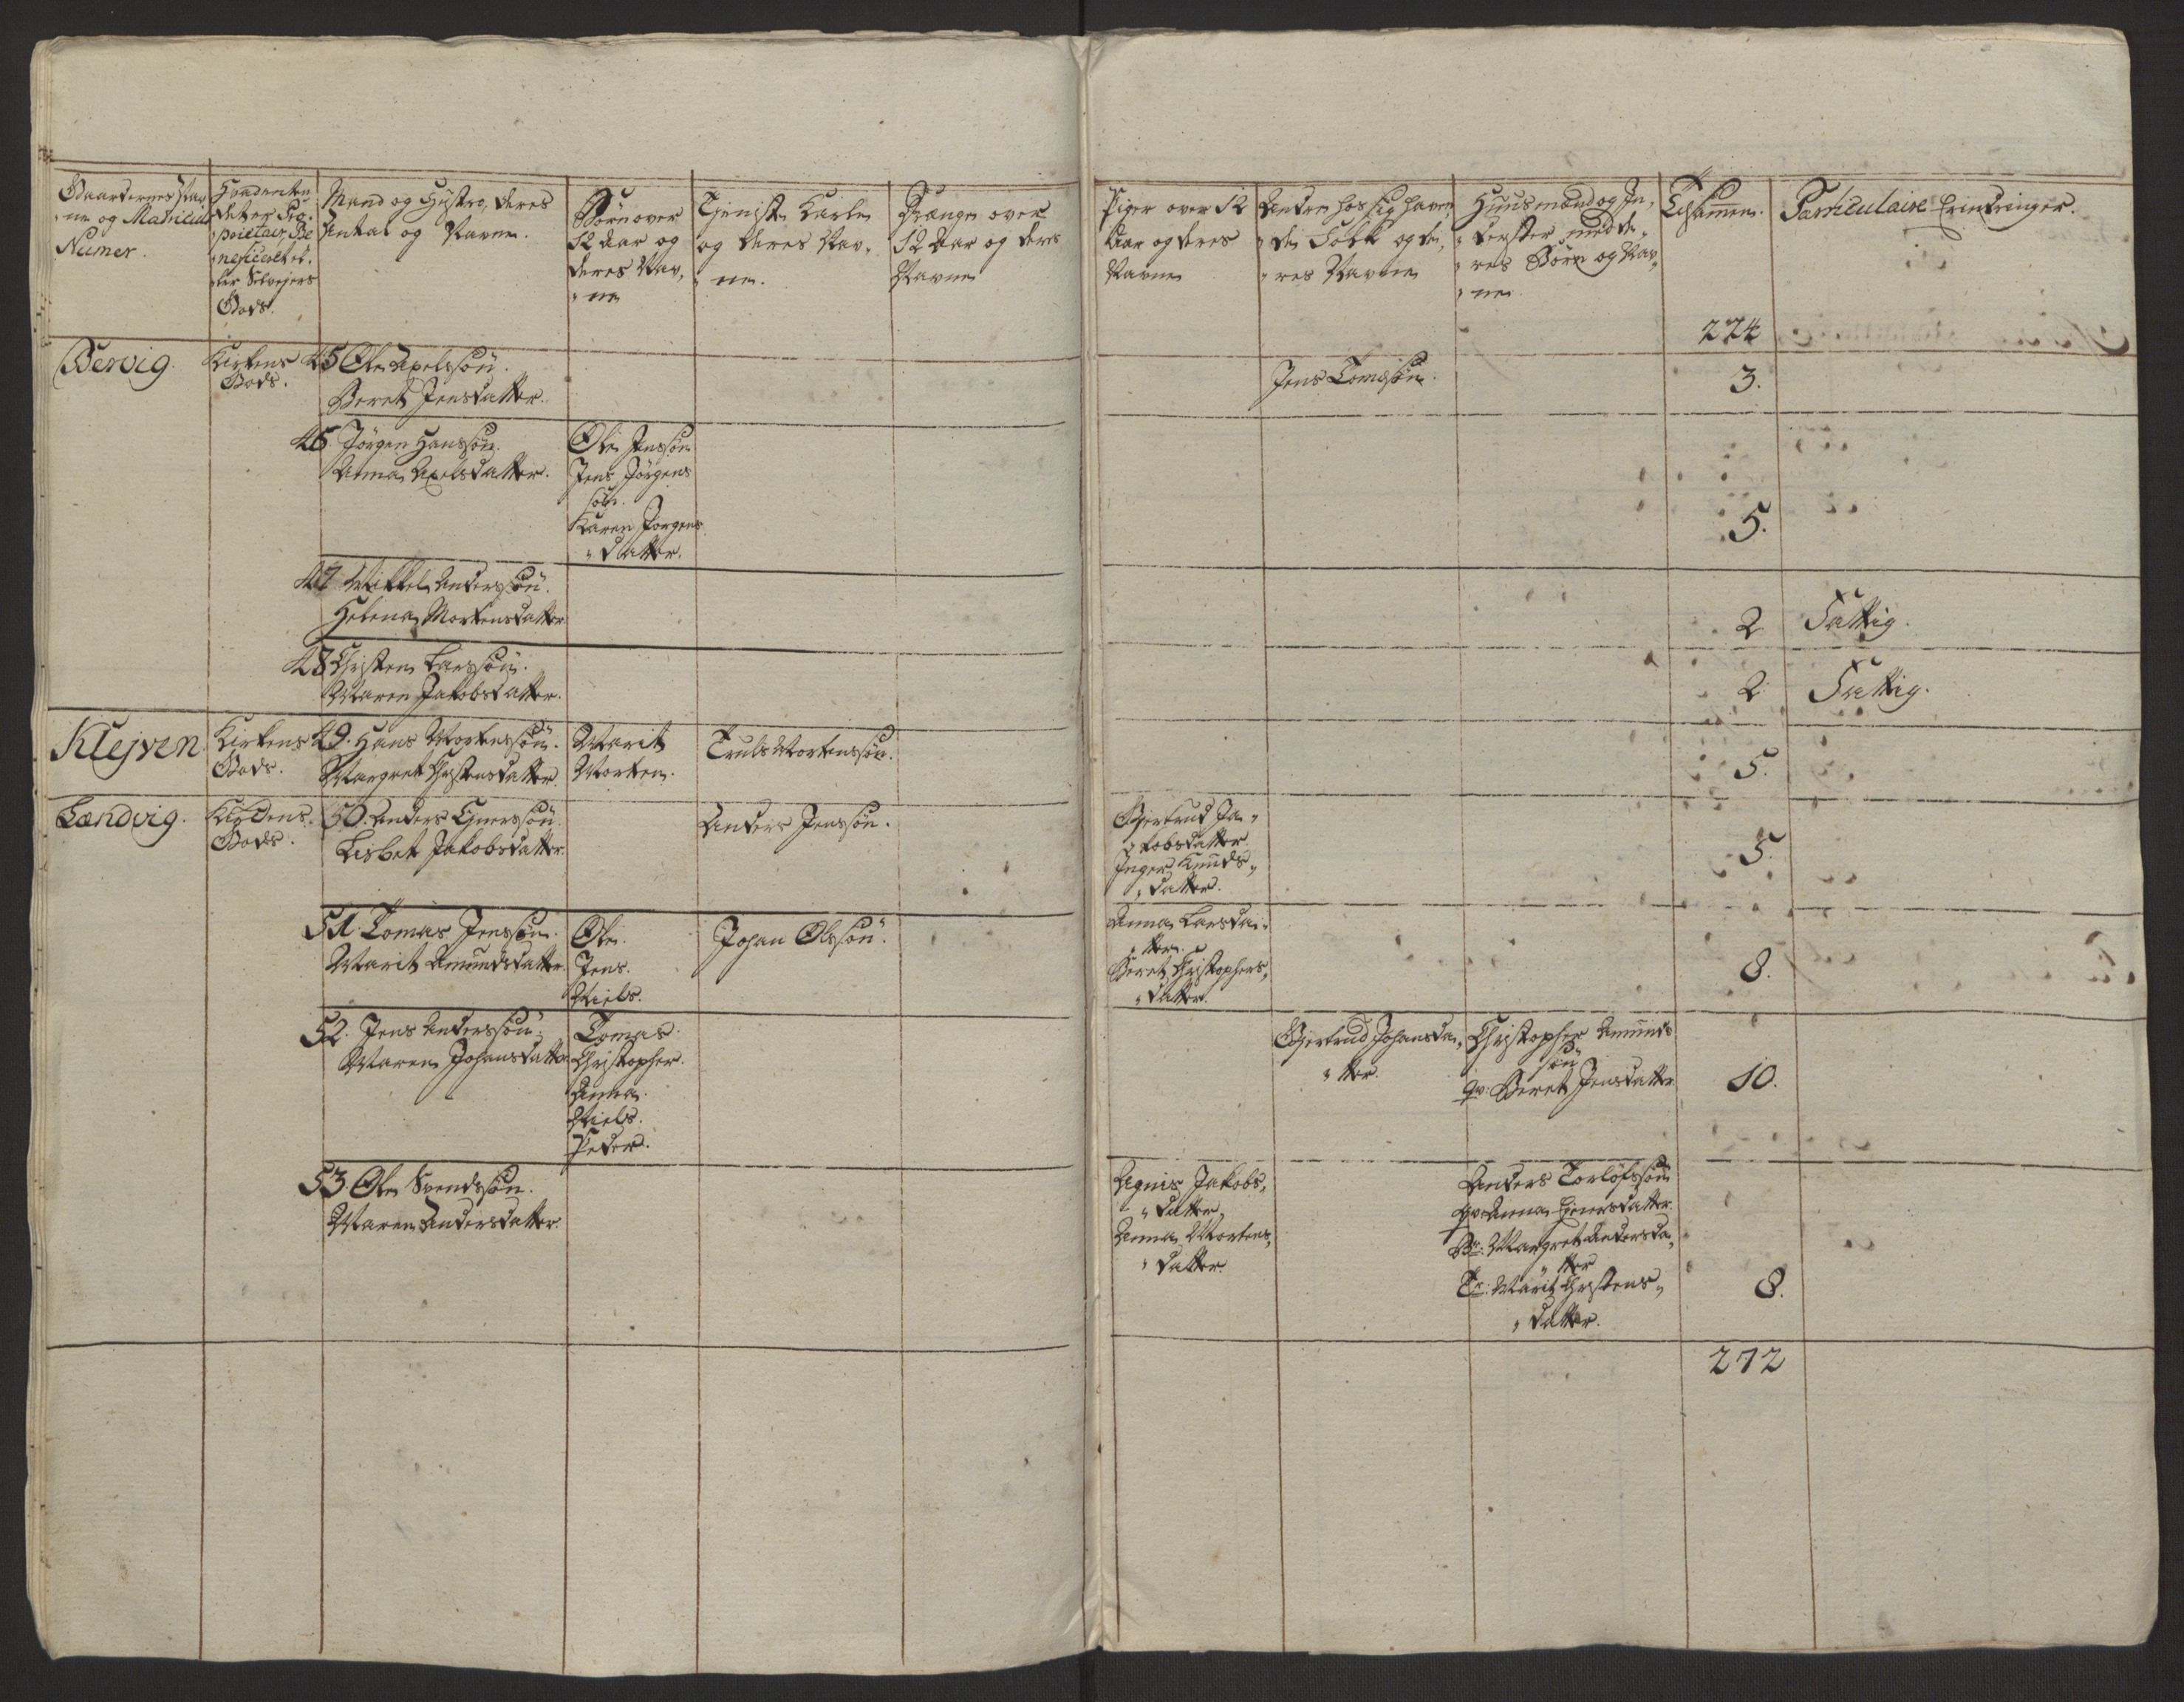 Gaardernes Nav
ne og Matricul
Numer.
Hvad enten
det er Pro-
prietair, Be
neficeret el-
ler Selvejers
Gods.
Mand og Hustro, deres
Antal og Navne.
Børn over
12 Aar og
deres Nav,
"ne
Tjeniste Karle
og deres Nav-
"ne.
Drænge over
12 Aar og deres
Navne
Piger over 12
Aar og deres
Navne
Andre hos sig haven
de Folk og de,
"res Navne
Huusmænd og In,
derster med de,
"res Børn og Nav,
"ne
Tilsammen.
Particulaire Erindringer.
224
Bervig.
Kirkens
Gods.
45 Ole Axelssøn.
Beret Jensdatter.
Jens Tomssøn.
3.
46. Jörgen Hanssøn.
Anna Axelsdatter.
Ole Jenssøn
Jens Jörgens
søn.
Karen Jörgens
"datter.
5.
47 Mikkel Anderssøn.
Helena Mortensdatter
2
Fattig.
48 Christen Larssøn.
Maren Jakobsdatter.
2
Fattig.
Klejven
Kirkens
Gods.
49. Hans Mortenssøn.
Margret Christensdatter
Marit
Morten.
Truls Mortenssøn.
5.
Landvig.
Kirkens
Gods.
50. Anders Ejnerssøn
Lisbet Jakobsdatter.
Anders Jenssøn.
Gjertrud Ja-
"kobsdatter.
Inger Knuds-
"datter.
5.
51. Tomas Jenssøn.
Marit Amundsdatter.
Ole.
Jens.
Niels.
Johan Olssøn.
Anna Larsda-
"tter.
Beret Christophers,
"datter.
8.
52. Jens Anderssøn.
Maren Johansdatter
Tomas.
Christopher.
Anna.
Niels.
Peder.
Gjertrud Johansda,
"tter.
Christopher Amunds
søn
qv: Beret Jensdatter
10.
53. Ole Svendssøn.
Maren Andersdatter.
Agnis Jakobs,
"datter,
Anna Mortens,
"datter.
Anders Torlofssøn
qv: Anna Ejnersdatter.
Br: Margret Andersda,
"tter
Tr: Marit Christens,
"datter.
8.
272